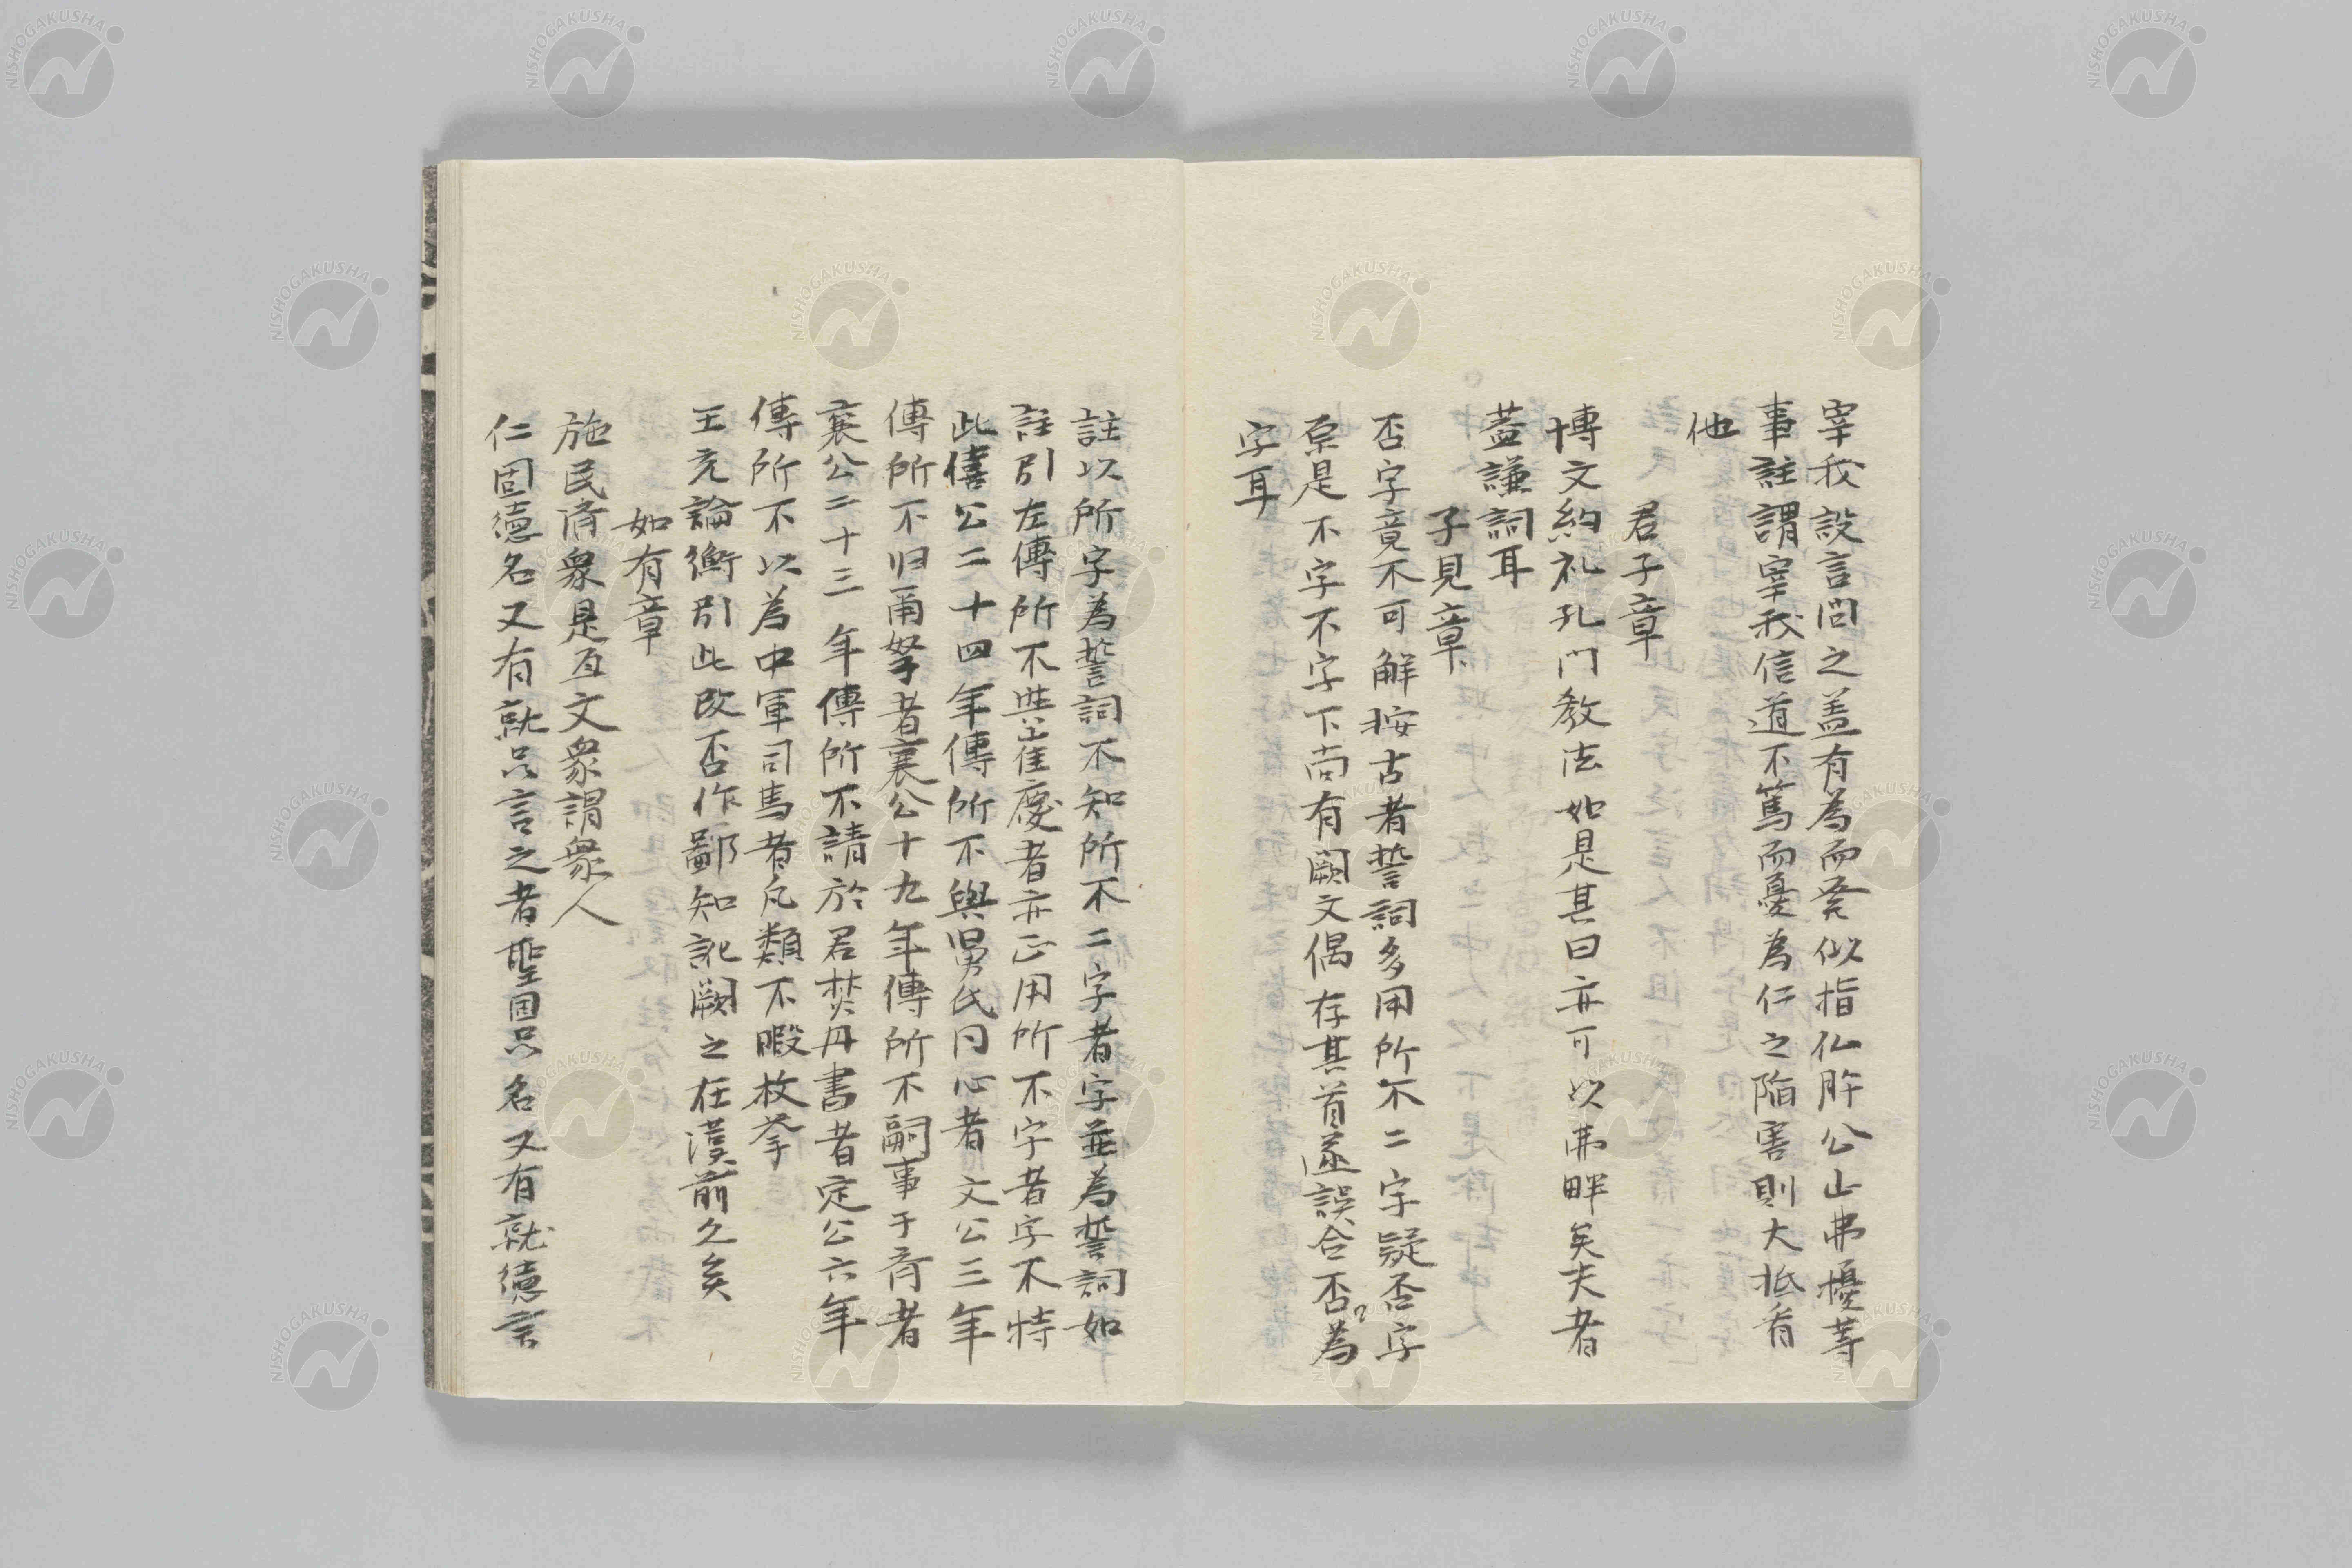 宰我設言問之盖有為而発似指仏肸公山弗擾等
事註謂宰我信道不篤而憂為仁之陥害則大抵看
他
君子章
博文約礼孔門教法如是其曰亦可以弗畔矣夫者
葢謙詞耳
子見章
否字竟不可解按古者誓詞多用所不二字疑否字
原是不字不字下尚有闕文偶存其首遂誤合否為
字耳
註以所字為誓詞不知所不二字者字並為誓詞如
註引左傳所不與崔慶者亦正用所不字者字不特
此僖公二十四年傳所不與舅氏同心者文公三年
傳所不归爾孥者襄公十九年傳所不嗣事于齊者
襄公二十三年傳所不請於君焚丹書者定公六年
傳所不以為中軍司馬者凡類不暇枚挙
王充論衡引此改否作鄙知訛闕之在漢前久矣
如有章
施民済衆是互文衆謂衆人
仁固徳名又有就品言之者聖固品名又有就徳言
NISHOGAKUSHA